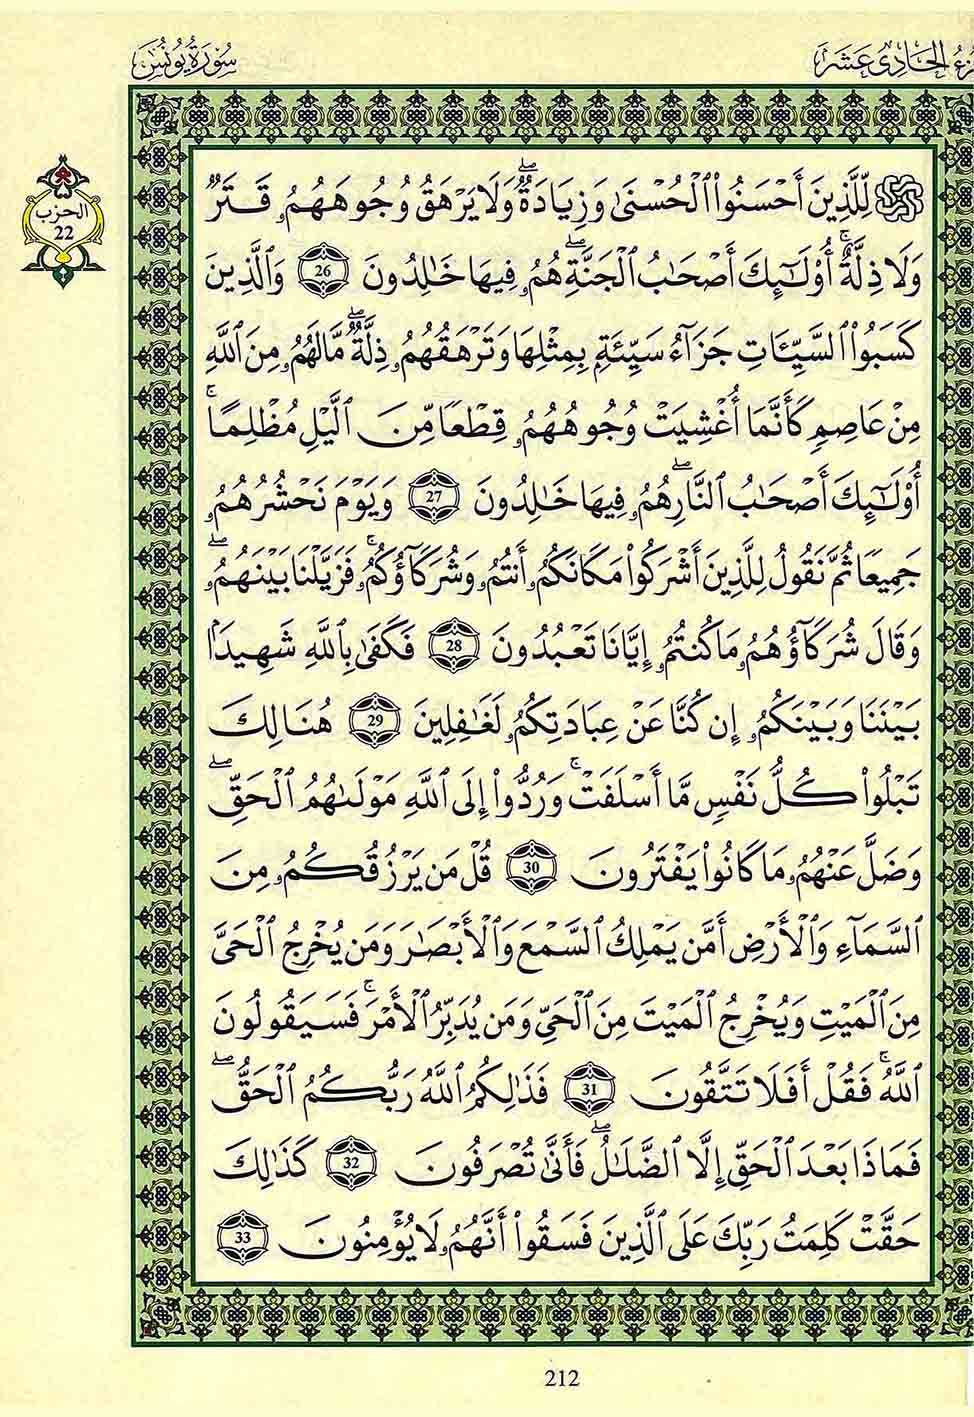 سُورَةُ يُونُسَ
الحَادِي عَشَرَ
الحزب
22
لِّلَّذِينَ أَحْسَنُوا۟ ٱلْحُسْنَىٰ وَزِيَادَةٌۖ وَلَا يَرْهَقُ وُجُوهَهُمُۥ قَتَرٌ
وَلَا ذِلَّةٌۚ أُو۟لَـٰٓئِكَ أَصْحَـٰبُ ٱلْجَنَّةِۖ هُمُۥ فِيهَا خَـٰلِدُونَ 26 وَٱلَّذِينَ
كَسَبُوا۟ ٱلسَّيِّـَٔاتِ جَزَآءُ سَيِّئَةِۭ بِمِثْلِهَا وَتَرْهَقُهُمُۥ ذِلَّةٌۖ مَّا لَهُمُۥ مِنَ ٱللَّهِ
مِنْ عَاصِمٍ كَأَنَّمَا أُغْشِيَتْ وُجُوهُهُمُۥ قِطَعًا مِّنَ ٱلَّيْلِ مُظْلِمًاۚ
أُو۟لَـٰٓئِكَ أَصْحَـٰبُ ٱلنَّارِۖ هُمُۥ فِيهَا خَـٰلِدُونَ 27 وَيَوْمَ نَحْشُرُهُمُۥ
جَمِيعًا ثُمَّ نَقُولُ لِلَّذِينَ أَشْرَكُوا۟ مَكَانَكُمُۥ أَنتُمُۥ وَشُرَكَآؤُكُمُۥۚ فَزَيَّلْنَا بَيْنَهُمُۥۖ
وَقَالَ شُرَكَآؤُهُمُۥ مَا كُنتُمُۥ إِيَّانَا تَعْبُدُونَ 28 فَكَفَىٰ بِٱللَّهِ شَهِيدَۢا
بَيْنَنَا وَبَيْنَكُمُۥ إِن كُنَّا عَنْ عِبَادَتِكُمُۥ لَغَـٰفِلِينَ 29 هُنَالِكَ
تَبْلُوا۟ كُلُّ نَفْسٍ مَّا أَسْلَفَتْۚ وَرُدُّوا۟ إِلَى ٱللَّهِ مَوْلَىٰهُمُ ٱلْحَقِّۖ
وَضَلَّ عَنْهُمُۥ مَا كَانُوا۟ يَفْتَرُونَ 30 قُلْ مَن يَرْزُقُكُمُۥ مِنَ
ٱلسَّمَآءِ وَٱلْأَرْضِ أَمَّن يَمْلِكُ ٱلسَّمْعَ وَٱلْأَبْصَـٰرَ وَمَن يُخْرِجُ ٱلْحَىَّ
مِنَ ٱلْمَيْتِ وَيُخْرِجُ ٱلْمَيْتَ مِنَ ٱلْحَىِّ وَمَن يُدَبِّرُ ٱلْأَمْرَۚ فَسَيَقُولُونَ
ٱللَّهُۚ فَقُلْ أَفَلَا تَتَّقُونَ 31 فَذَٰلِكُمُ ٱللَّهُ رَبُّكُمُ ٱلْحَقُّۖ
فَمَاذَا بَعْدَ ٱلْحَقِّ إِلَّا ٱلضَّلَـٰلُۖ فَأَنَّىٰ تُصْرَفُونَ 32 كَذَٰلِكَ
حَقَّتْ كَلِمَتُ رَبِّكَ عَلَى ٱلَّذِينَ فَسَقُوا۟ أَنَّهُمُۥ لَا يُؤْمِنُونَ 33
212